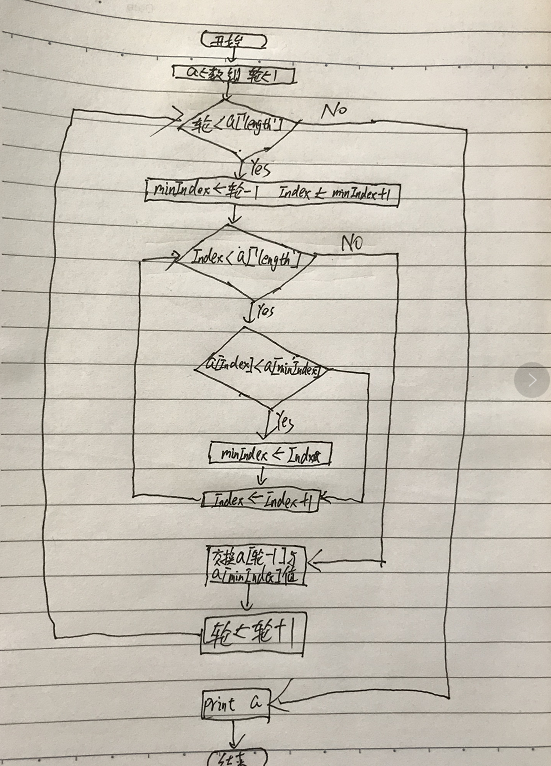 开始
a←数组 轮←1
轮<a['length']
No
Yes
minIndex←轮-1 Index←minIndex+1
Index<a['length']
NO
Yes
a[Index]<a[minIndex]
Yes
minIndex←Index
Index←Index+1
交换a[轮-1]与
a[minIndex]值
轮←轮+1
print a
结束